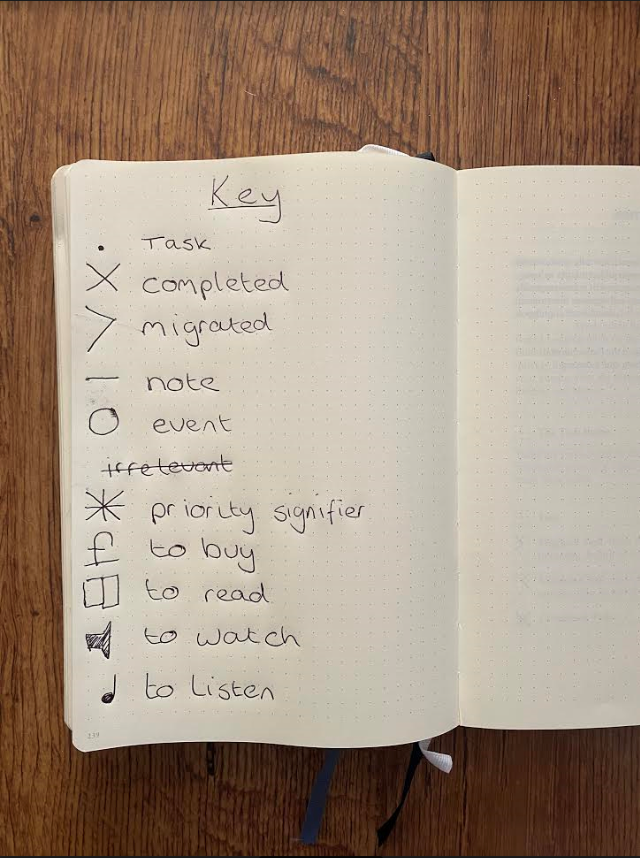 Key
• Task
X completed
> migrated
— note
O event
irrelevant
* priority signifier
£ to buy
to read
to watch
♩ to listen